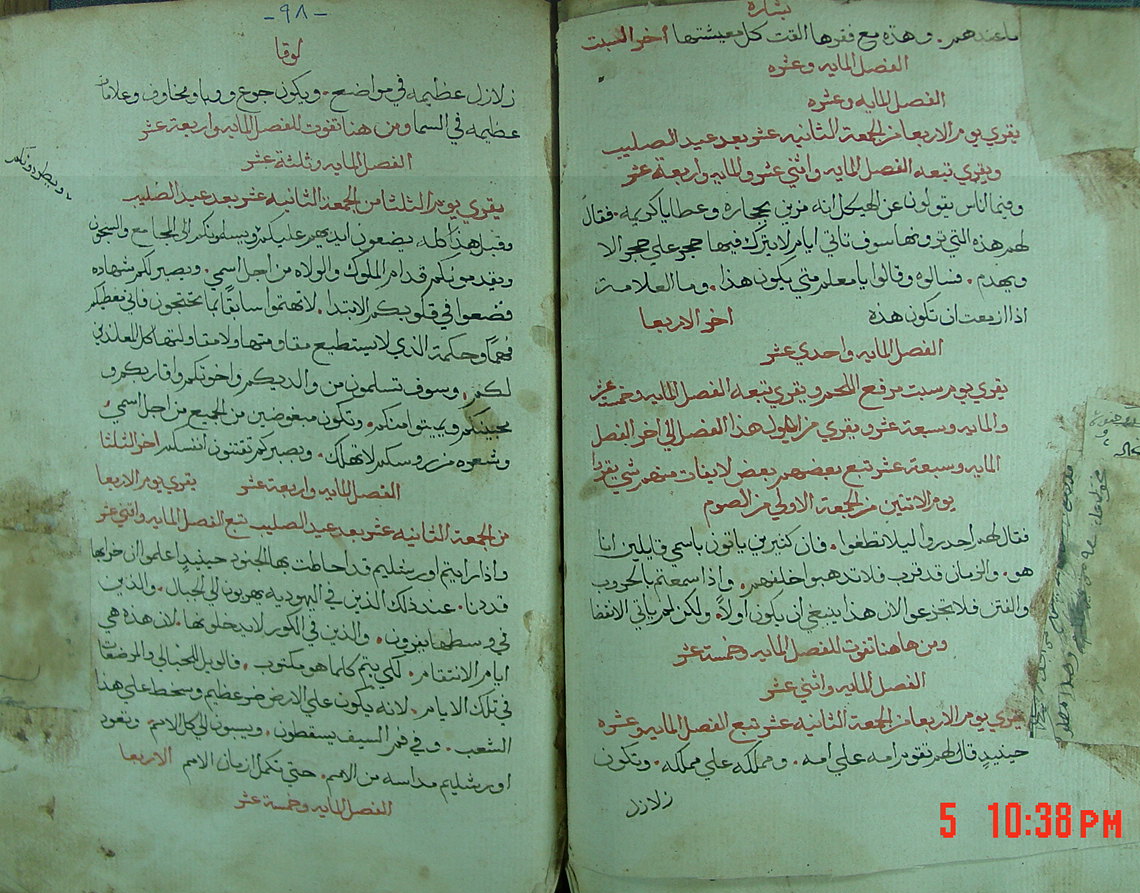 بشارة
ما عندهم. وهذه مع فقرها القت كل معيشتها اخر السبت
الفصل المايه وعشره
الفصل المايه وعشره
يقري يوم الاربعا من الجمعة الثانيه عشر بعد عيد الصليب
ويقري تبعه الفصل المايه واثني عشر والمايه واربعة عشر
وفيما الناس يقولون عن الهيكل انه مزين بحجاره وعطايا كريمه. فقال
لهم هذه التي ترونها سوف تاتي ايام لا يترك فيها حجر علي حجر الا
ويهدم. فسالوه وقالوا يا معلم متي يكون هذا. وما العلامة
اذا ازمعت ان تكون هذه اخر الاربعا
الفصل المايه واحدي عشر
يقري يوم سبت مرفع اللحم ويقري تبعه الفصل المايه وخمسة عشر
والمايه وسبعة عشر ويقري من اول هذا الفصل الي اخر الفصل
المايه وسبعة عشر تبع بعضهم بعض لا يفات منهم شي يقرا
يوم الاثنين من الجمعة الاولي من الصوم
فقال لهم احدروا ليلا تطغوا. فان كثيرين ياتون باسمي قايلين انا
هو. والزمان قد قرب فلا تدهبوا خلفهم. واذا سمعتم بالحروب
والفتن فلا تجزعوا لان هذا ينبغي ان يكون اولاً. ولكن لم ياتي الانقضا
ومن هاهنا تفوت للفصل المايه وخمسة عشر
الفصل المايه واثني عشر
يقري يوم الاربعا من الجمعة الثانية عشر تبع الفصل المايه وعشره
حينيدٍ قال لهم تقوم امه علي امه. ومملكه علي مملكه. وتكون
زلازل
-٩٨-
لوقا
زلازل عظيمه في مواضع. ويكون جوع ووبا ومخاوف وعلامات
عظيمه في السما ومن هنا تفوت للفصل المايه واربعة عشر
الفصل المايه وثلثة عشر
يقري يوم الثلثا من الجمعة الثانيه عشر بعد عيد الصليب
وقبل هذا كله يضعون ايديهم عليكم ويسلمونكم الي المجامع والسجون
ويطردونكم
ويقدمونكم قدام الملوك والولاه من اجل اسمي. ويصير لكم شهاده
فضعوا في قلوبكم الابتدا. لا تهتموا سابقاً بما تحتجون فاني معطيكم
فماً وحكمة الذي لا يستطيع مقاومتها ولا مقاولتها كل المعاندين
لكم. وسوف تسلمون من والديكم واخوتكم واقاربكم و
محبينكم ويميتوا منكم. وتكون مبغوضين من الجميع من اجل اسمي
وشعره من روسكم لا تهلك. وبصبركم تقتنون انفسكم اخر الثلثا
الفصل المايه واربعة عشر يقري يوم الاربعا
من الجمعة الثانيه عشر بعد عيد الصليب تبع الفصل المايه واثني عشر
واذا رايتم اورشليم قد احاطت بها الجنود حينيدٍ اعلموا ان خرابها
قد دنا. عند ذلك الذين في اليهودية يهربون الي الجبال. والذين
في وسطها يفرون. والذين في الكور لا يدخلونها. لان هذه هي
ايام الانتقام. لكي يتم كلما هو مكتوب. فالويل للحبالي والمرضعات
في تلك الايام. لانه يكون علي الارض ضر عظيم وسخط علي هذا
الشعب. وفي فم السيف يسقطون. ويسبون الي كل الامم. وتعود
اورشليم مداسه من الامم. حتي تكمل ازمان الامم الاربعا
الفصل المايه وخمسة عشر
5 10:38 PM